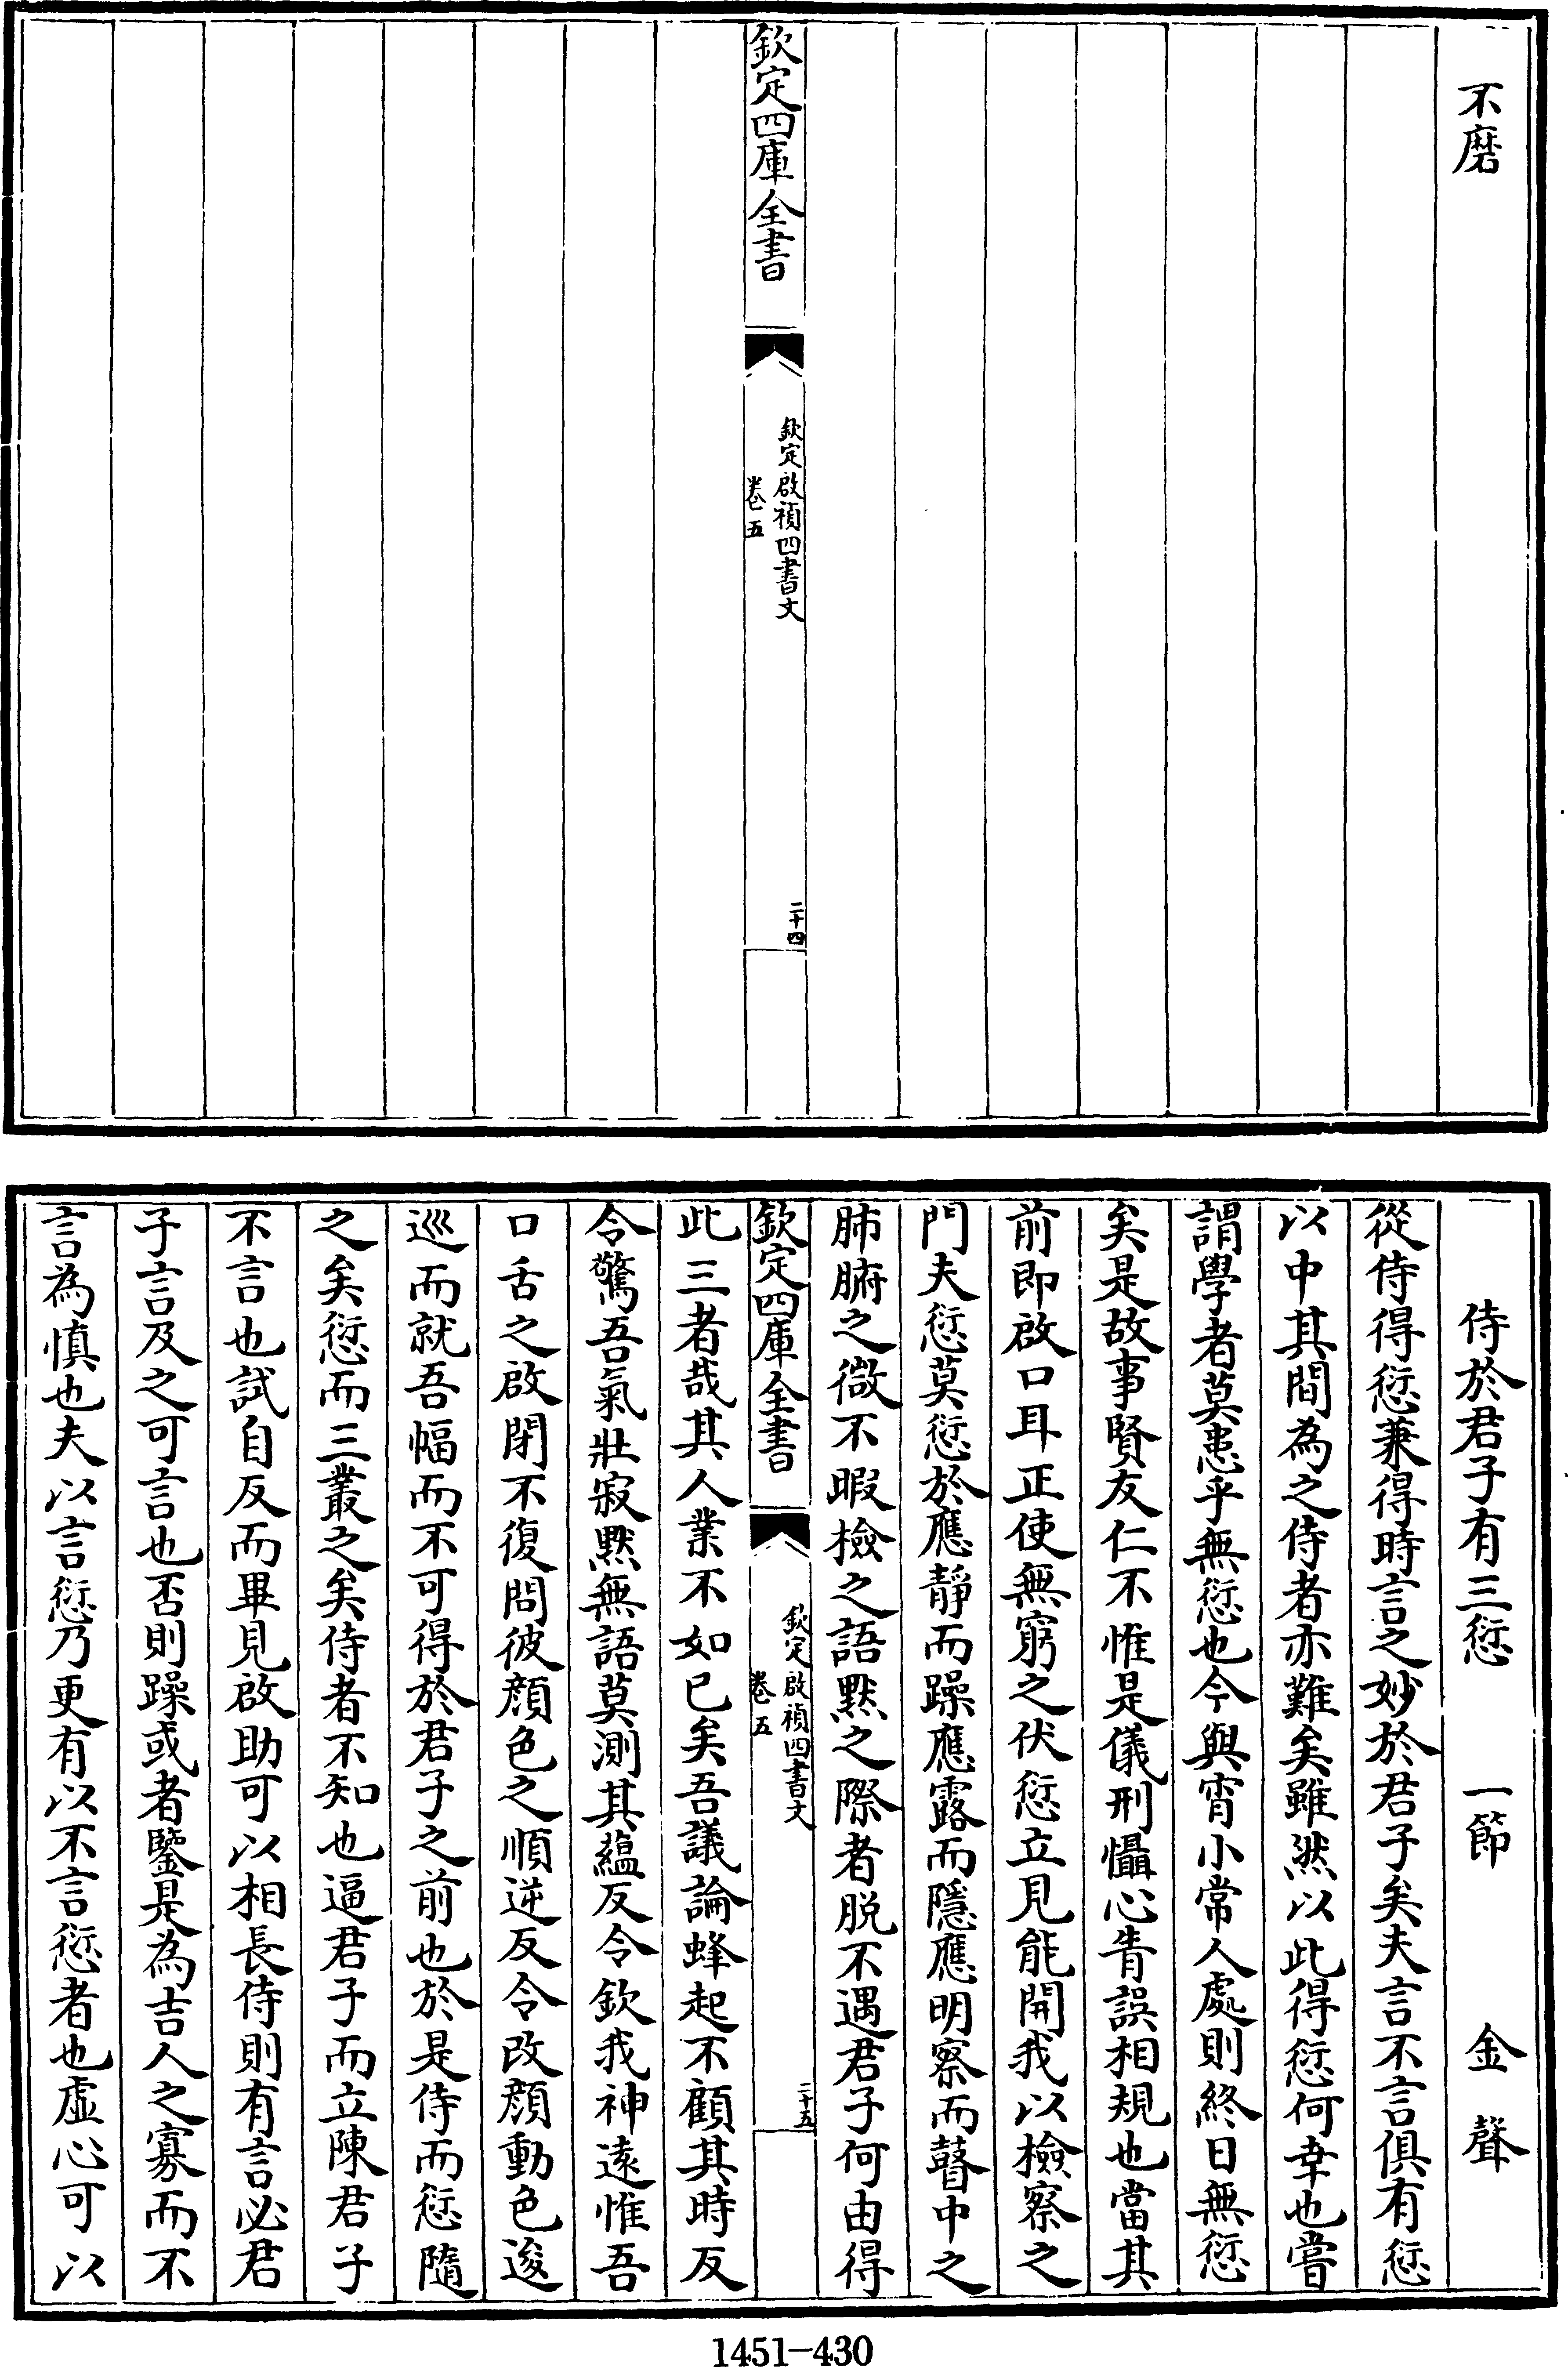 不磨
欽定四庫全書
欽定啟禎四書文
卷五
二十四
侍於君子有三愆 一節 金聲
從侍得愆兼得時言之妙於君子矣夫言不言俱有愆
以中其間為之侍者亦難矣雖然以此得愆何幸也嘗
謂學者莫患乎無愆也今與宵小常人處則終日無愆
矣是故事賢友仁不惟是儀刑懾心眚誤相規也當其
前即啟口耳正使無窮之伏愆立見能開我以檢察之
門夫愆莫愆於應靜而躁應露而隱應明察而瞽中之
肺腑之微不暇檢之語黙之際者脱不遇君子何由得
欽定四庫全書
欽定啟禎四書文
卷五
二十五
此三者哉其人業不如已矣吾議論蜂起不顧其時反
令驚吾氣壯寂黙無語莫測其蘊反令欽我神遠惟吾
口舌之啟閉不復問彼顔色之順逆反令改顔動色逡
巡而就吾幅而不可得於君子之前也於是侍而愆隨
之矣愆而三叢之矣侍者不知也逼君子而立陳君子
不言也試自反而畢見啟助可以相長侍則有言必君
子言及之可言也否則躁或者鑒是為吉人之寡而不
言為慎也夫以言愆乃更有以不言愆者也虛心可以
1451-430